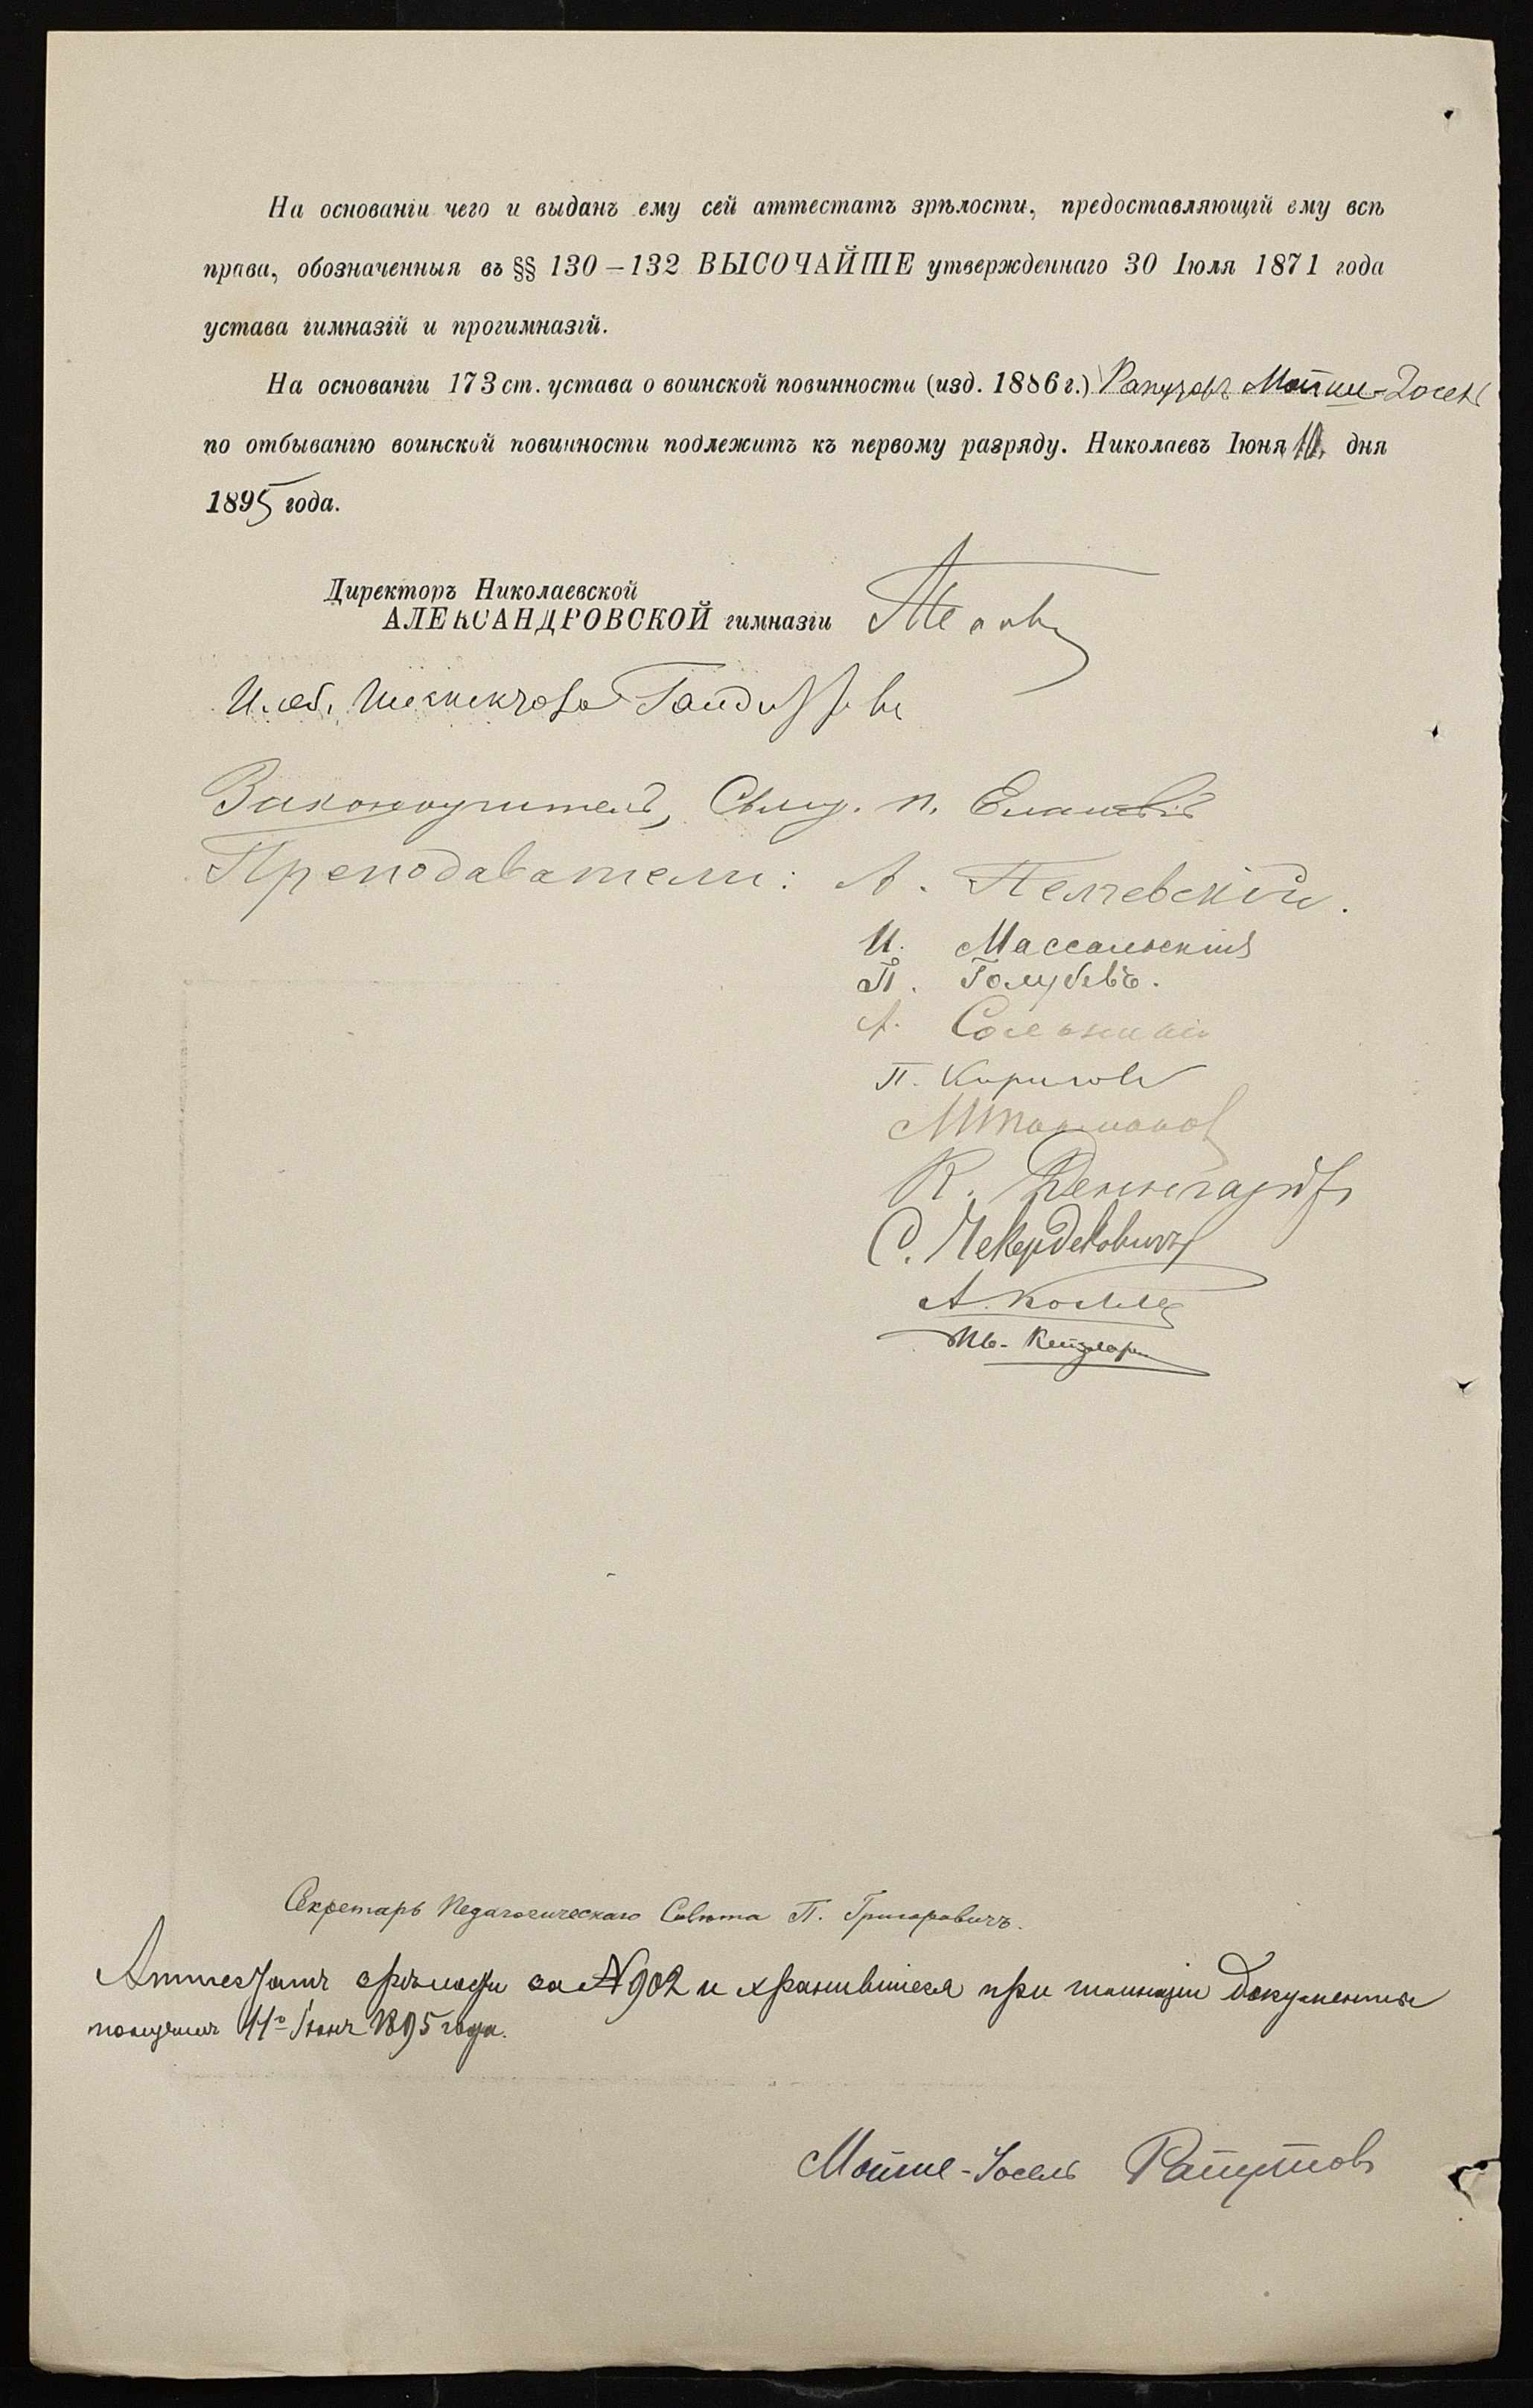 На основаніи чего и выданъ ему сей аттестатъ зрѣлости, предоставляющій ему всѣ
права, обозначенныя въ §§ 130–132 ВЫСОЧАЙШЕ утвержденнаго 30 Іюля 1871 года
устава гимназій и прогимназій.
На основаніи 173 ст. устава о воинской повинности (изд. 1886 г.) Мойше-Іосель
по отбыванію воинской повинности подлежитъ къ первому разряду. Николаевъ Іюня дня
1895 года.
Директоръ Николаевской
АЛЕКСАНДРОВСКОЙ гимназіи
И. об. Инспектора
Законоучитель, Свящ. п.
Преподаватели: А.
И. Массальскій
П. Голубевъ.
А.
П. Кириловъ
К.
С. Чекердековичъ
А.
Секретарь Педагогическаго Совѣта П. Григоровичъ.
Аттестатъ зрѣлости за № 902 и хранившіеся при гимназіи документы
получилъ 11го Іюня 1895 года.
Мойше-Іосель Рапутовъ